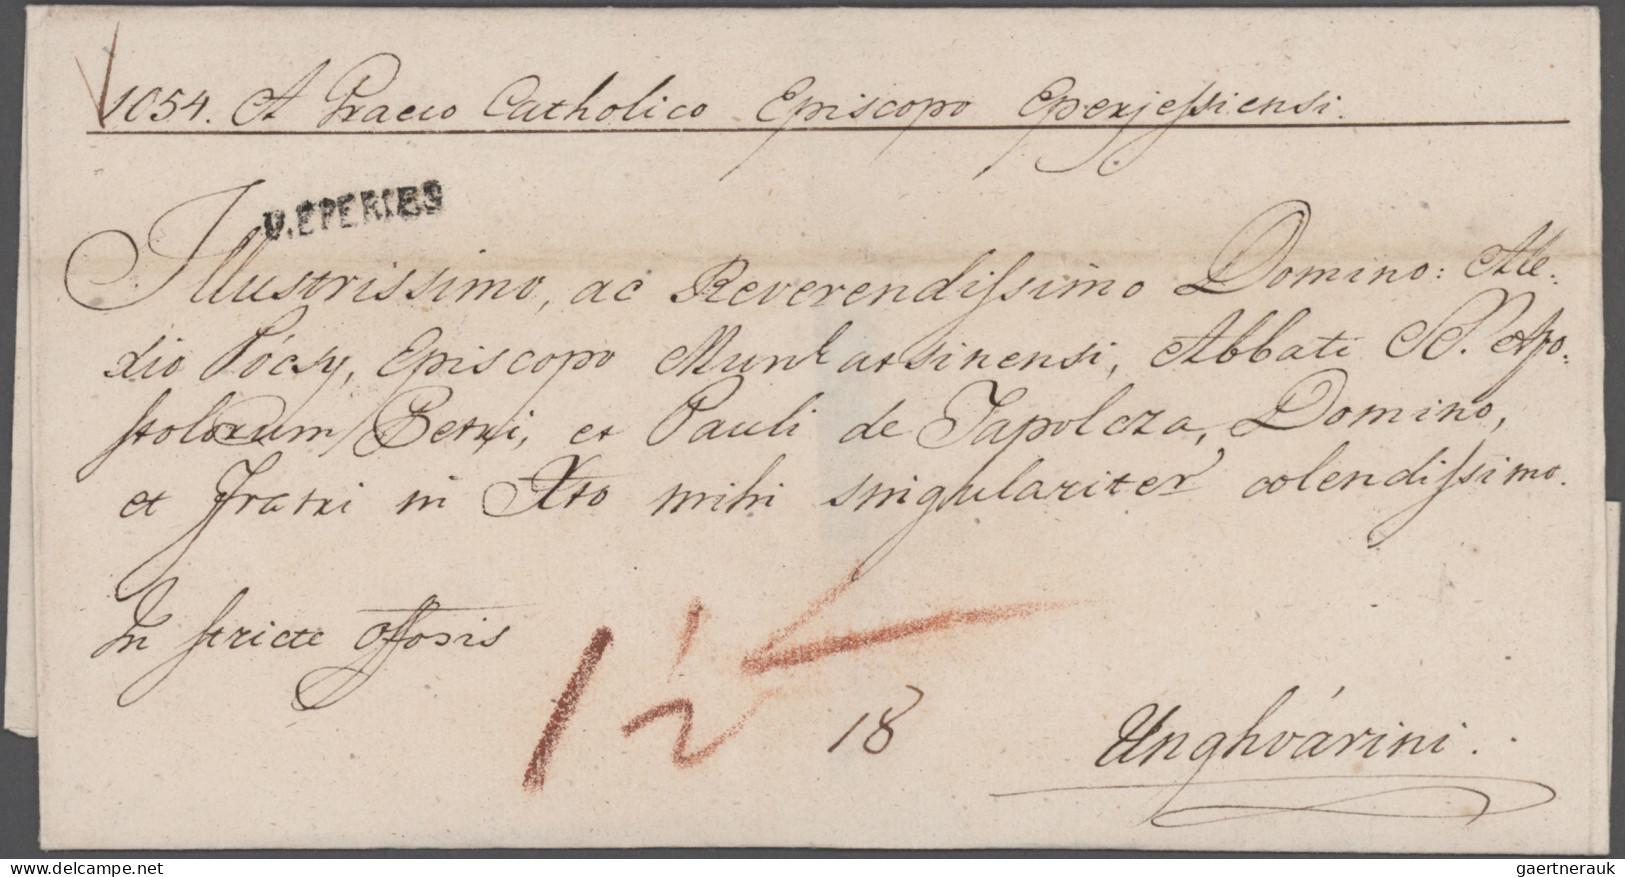 1054. A Graeco Catholico Episcopo Eperjessiensi.
V. EPERIES
Illustrissimo, ac Reverendissimo Domino: Ale-
xio Pócsy, Episcopo Munkatsinensi, Abbati SS. Apo=
stolorum Petri, et Pauli de Tapolcza, Domino,
et Fratri in Xto mihi singulariter colendissimo.
In stricte offosis
18
Unghvárini.
gaertnerauk